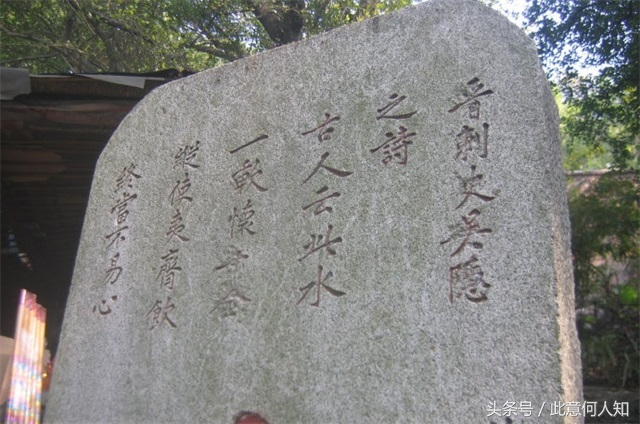 晉刺史吳隱
之詩
古人云此水
一歃懷千金
縱使夷齊飲
終當不易心
头条号 / 此意何人知